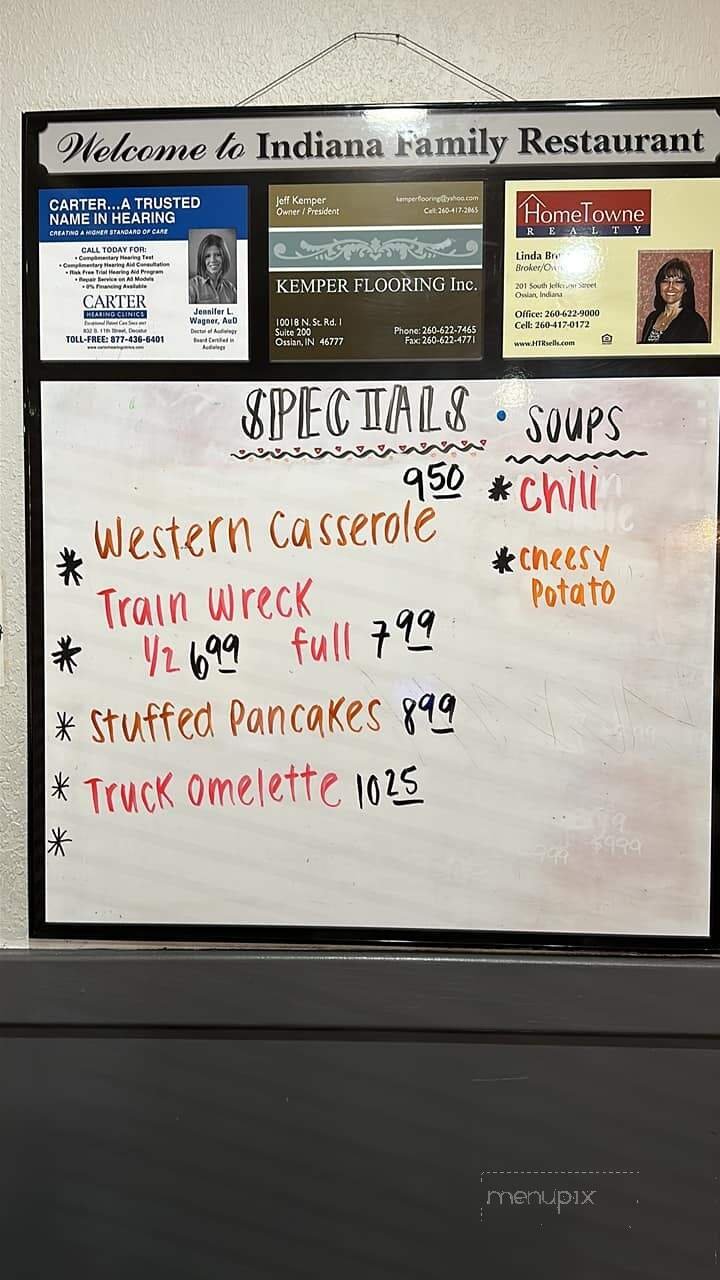 Welcome to Indiana Family Restaurant
CARTER...A TRUSTED
NAME IN HEARING
CREATING A HIGHER STANDARD OF CARE
CALL TODAY FOR:
• Complimentary Hearing Test
• Complimentary Hearing Aid Consultation
• Risk Free Trial Hearing Aid Program
• Repair Service on All Models
• 0% Financing Available
CARTER
HEARING CLINICS
832 S. 11th Street, Decatur
TOLL-FREE: 877-436-6401
www.carterhearingclinics.com
Jennifer L.
Wagner, AuD
Doctor of Audiology
Board Certified in
Audiology
Jeff Kemper
Owner / President
kemperflooring@yahoo.com
Cell: 260-417-2865
KEMPER FLOORING Inc.
10018 N. St. Rd. 1
Suite 200
Ossian, IN 46777
Phone: 260-622-7465
Fax: 260-622-4771
HomeTowne
REALTY
Linda
201 South Jefferson Street
Ossian, Indiana
Office: 260-622-9000
Cell: 260-417-0172
www.HTRsells.com
SPECIALS
950
* Western Casserole
Train Wreck
* 1/2 699 full 799
* Stuffed Pancakes 899
* Truck Omelette 1025
*
• SOUPS
* Chili
* Cheesy
Potato
menupix